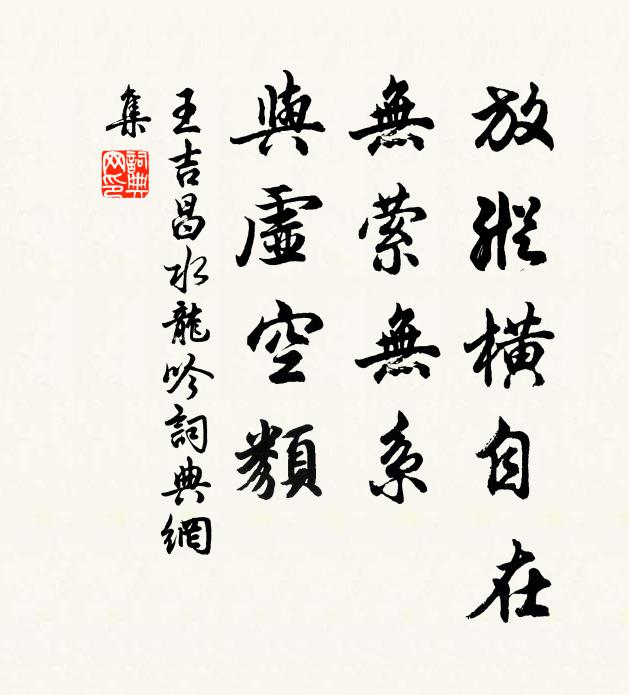 放縱橫自在
無縈無系
與虛空類
王吉昌水龍吟詞典網
集
詞典
网印